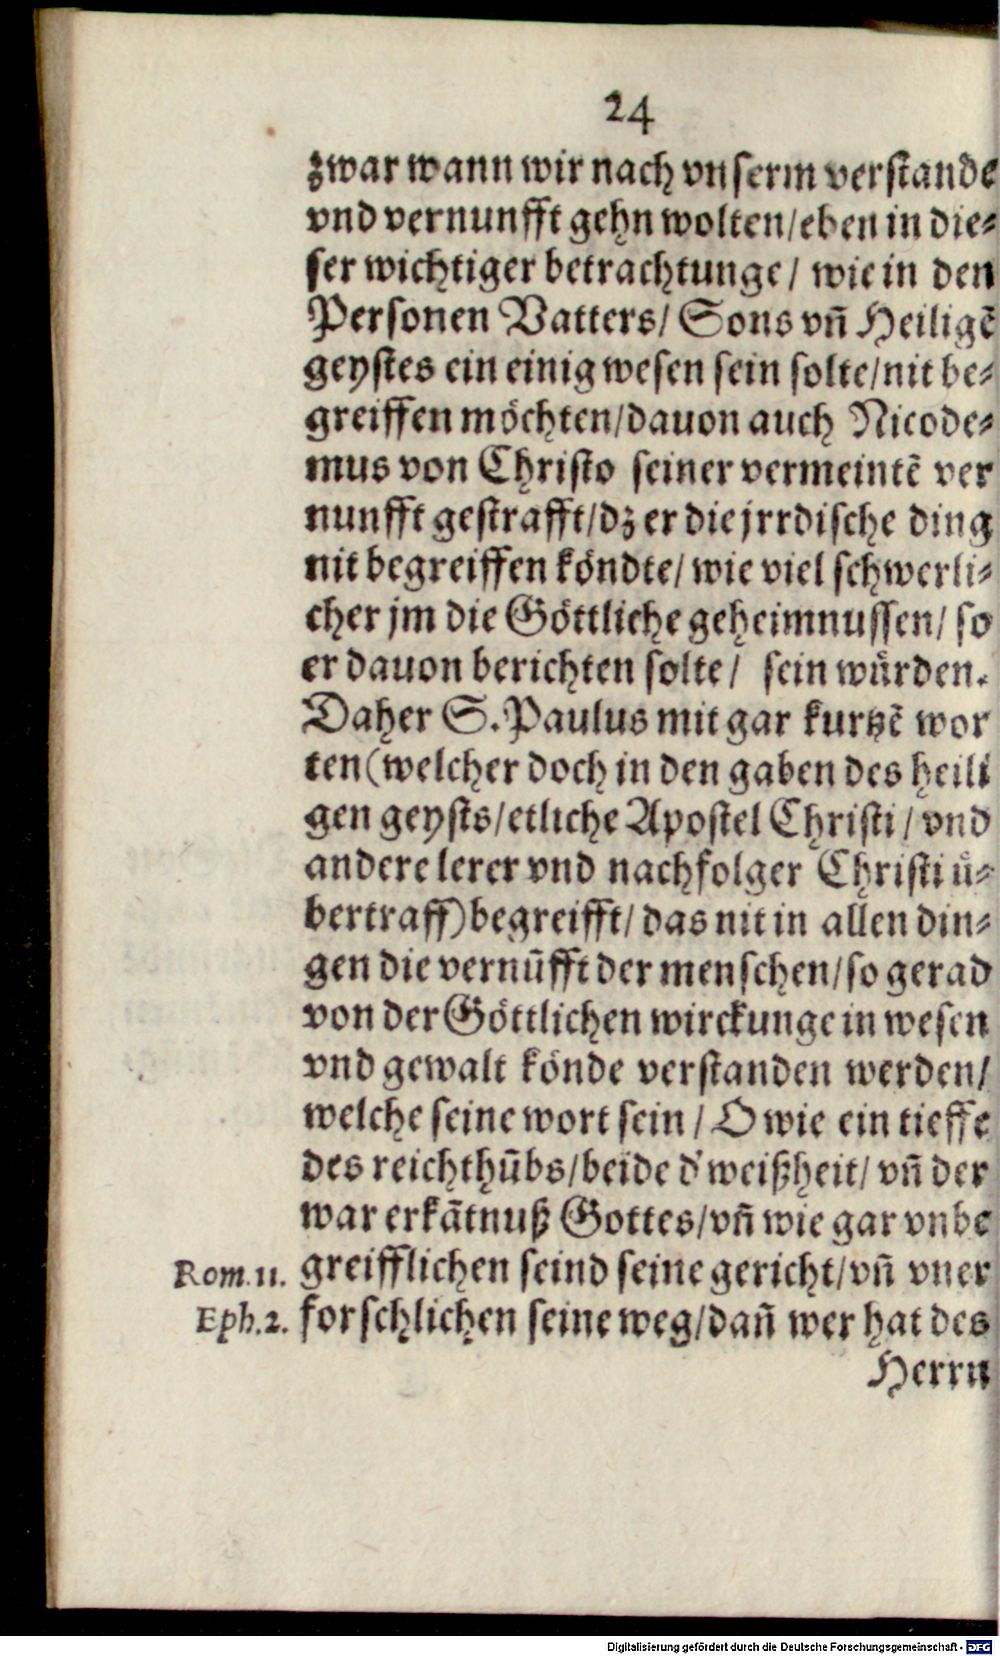 24
zwar wann wir nach vnserm verstande
vnd vernunfft gehn wolten/eben in die⸗
ser wichtiger betrachtunge/ wie in den
Personen Vatters/ Sons vn̄ Heiligē
geystes ein einig wesen sein solte/nit be⸗
greiffen möchten/dauon auch Nicode⸗
mus von Christo seiner vermeintē ver
nunfft gestrafft/dz er die jrrdische ding
nit begreiffen köndte/ wie viel schwerli⸗
cher jm die Göttliche geheimnussen/ so
er dauon berichten solte/ sein würden.
Daher S. Paulus mit gar kurtzē wor
ten (welcher doch in den gaben des heili
gen geysts/etliche Apostel Christi/ vnd
andere lerer vnd nachfolger Christi ü⸗
bertraff) begreifft/ das nit in allen din⸗
gen die vernūfft der menschen/so gerad
von der Göttlichen wirckunge in wesen
vnd gewalt könde verstanden werden/
welche seine wort sein/ O wie ein tieffe
des reichthūbs/beide d' weißheit/ vn̄ der
war erkātnuß Gottes/vn̄ wie gar vnbe
Rom. 11. greifflichen seind seine gericht/vn̄ vner
Eph. 2. forschlichen seine weg/dan̄ wer hat des
Herrn
Digitalisierung gefördert durch die Deutsche Forschungsgemeinschaft - DFG